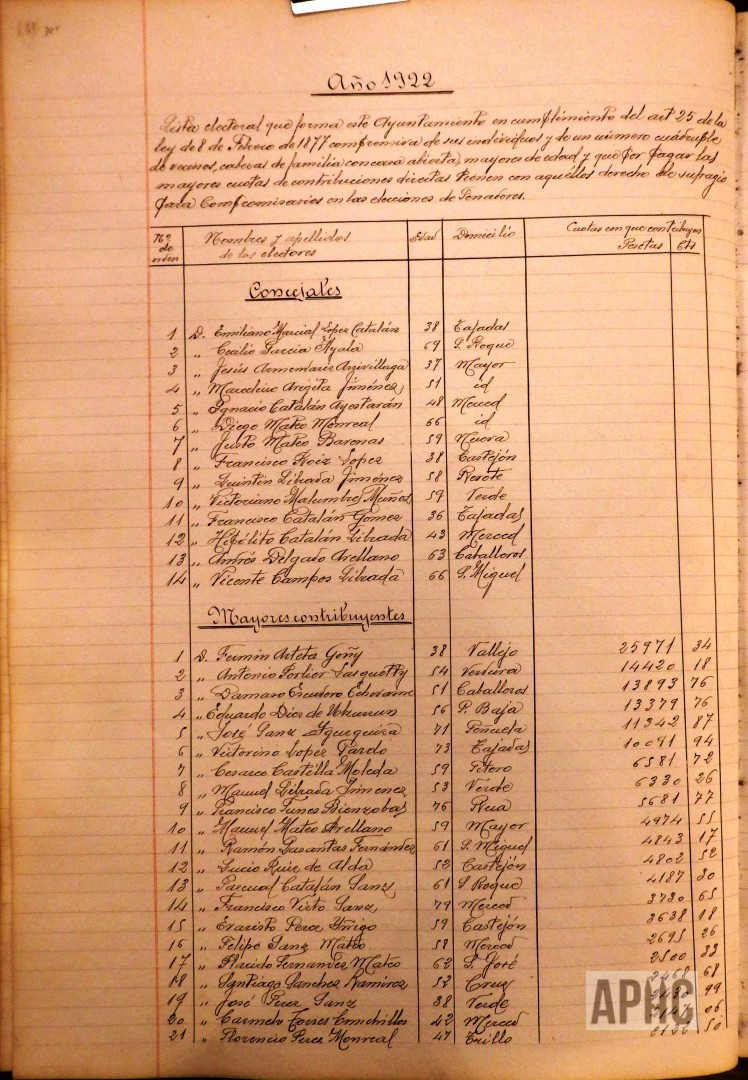 Año 1922
Lista electoral que forma este Ayuntamiento en cumplimiento del art 25 de la
ley de 8 de Febrero de 1877 comprensiva de sus individuos y de un número cuádruple
de vecinos, cabezas de familia con casa abierta, mayores de edad y que por pagar las
mayores cuotas de contribuciones directas tienen con aquellos derecho de sufragio
para Compromisarios en las elecciones de Senadores.
Nº de orden Nombres y apellidos de los electores Edad Domicilio Cuotas con que contribuyen Pesetas Cts
Concejales
1 D. Emiliano Marcial López Catalán 38 Tajadas
2 „ Cecilio García Ayala 69 S. Roque
3 „ Jesús Armendariz 37 Mayor
4 „ Marcelino Argita Jiménez 51 id
5 „ Ignacio Catalán Ayestarán 48 Merced
6 „ Diego Mateo Monreal 66 id
7 „ Justo Mateo Barenas 59
8 „ Francisco López 38 Castejón
9 „ Quintín Librada Jiménez 58
10 „ Victoriano Malumbres Muñoz 59 Verde
11 „ Francisco Catalán Gómez 36 Tajadas
12 „ Hipólito Catalán Librada 43 Merced
13 „ Andrés Delgado Arellano 63 Caballeros
14 „ Vicente Campos Librada 66 S. Miguel
Mayores contribuyentes
1 D. Fermin Arteta Goñy 38 Vallejo 25971 34
2 „ Antonio Forlier 54 Verdura 14420 18
3 „ Damaso Escudero 51 Caballeros 13893 76
4 „ Eduardo Dior de 56 P. Baja 13379 76
5 „ José Sanz 71 Peñuela 11342 87
6 „ Victorino Lopez Pardo 73 Tajadas 10091 94
7 „ Cesareo Castilla Moleda 59 Fitero 6581 72
8 „ Manuel Librada Jimenez 53 Verde 6330 26
9 „ Francisco Funes Bienzobas 76 Rua 5681 77
10 „ Manuel Mateo Arellano 59 Mayor 4974 55
11 „ Ramón Fernández 61 S. Miguel 4843 17
12 „ Lucio Ruiz de Alda 52 Castejón 4802 52
13 „ Pascual Catalán Sanz 61 S Roque 4187 30
14 „ Francisco Virto Sanz 79 Merced 3730 65
15 „ Evaristo Perez Yñigo 59 Castejón 3638 18
16 „ Felipe Sanz Mateo 58 Merced 2695 26
17 „ Plácido Fernandez Mateo 62 S. José 2500 33
18 „ Santiago Sanchez Ramirez 52 Cruz 2468 68
19 „ José Perez Sanz 38 Verde 99
20 „ Carmelo Torres 42 Merced 06
21 „ Florencio Perez Monreal 47 Trillo 50
APHC